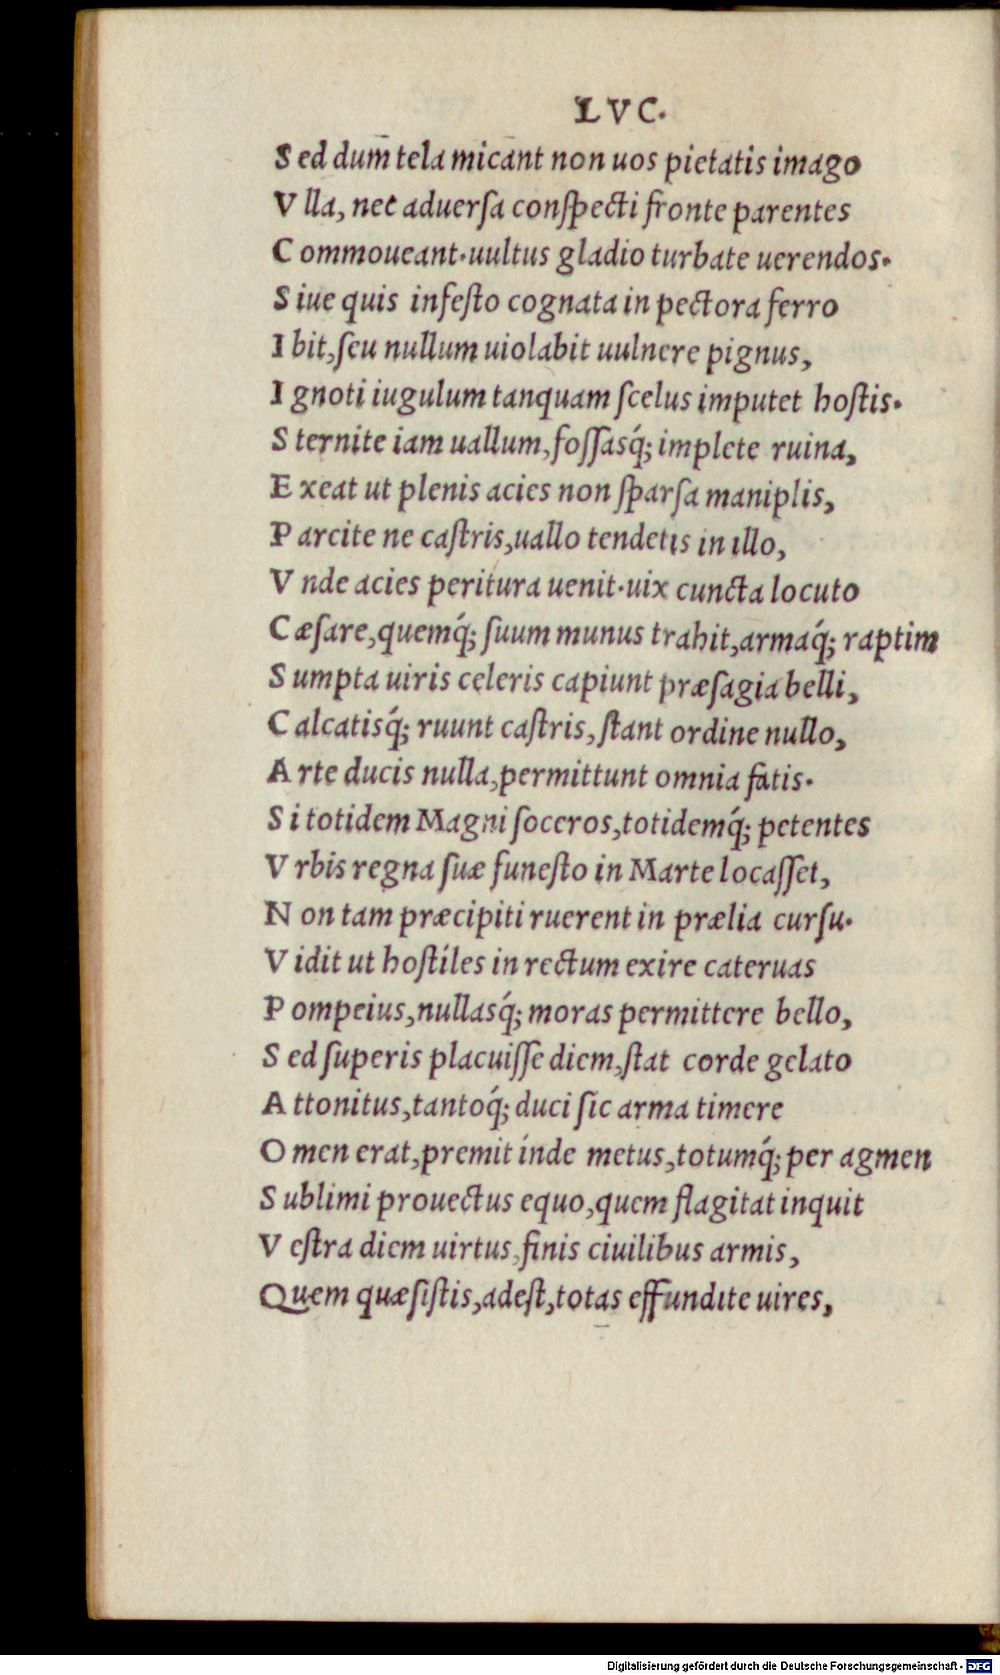 LVC.
S ed dum̄ tela micant non uos pietatis imago
V lla, nec aduerſa conſpecti fronte parentes
C ommoueant.uultus gladio turbate uerendos.
S iue quis infeſto cognata in pectora ferro
I bit,ſeu nullum uiolabit uulnere pignus,
I gnoti iugulum tanquam ſcelus imputet hoſtis.
S ternite iam uallum,foſſasq́; implete ruina,
E xeat ut plenis acies non ſparſa maniplis,
P arcite ne caſtris,uallo tendetis in illo,
V nde acies peritura uenit.uix cuncta locuto
C æſare,quemq́; ſuum munus trahit,armaq́; raptim
S umpta uiris celeris capiunt præſagia belli,
C alcatisq́; ruunt caſtris, ſtant ordine nullo,
A rte ducis nulla,permittunt omnia fatis.
S i totidem Magni ſoceros,totidemq́; petentes
V rbis regna ſuæ funeſto in Marte locaſſet,
N on tam præcipiti ruerent in prælia curſu.
V idit ut hoſtiles in rectum exire cateruas
P ompeius,nullasq́; moras permittere bello,
S ed ſuperis placuiſſe diem,ſtat corde gelato
A ttonitus,tantoq́; duci ſic arma timere
O men erat,premit inde metus,totumq́; per agmen
S ublimi prouectus equo,quem flagitat inquit
V eſtra diem uirtus,finis ciuilibus armis,
Quem quæſiſtis,adeſt,totas effundite uires,
Digitalisierung gefördert durch die Deutsche Forschungsgemeinschaft - DFG